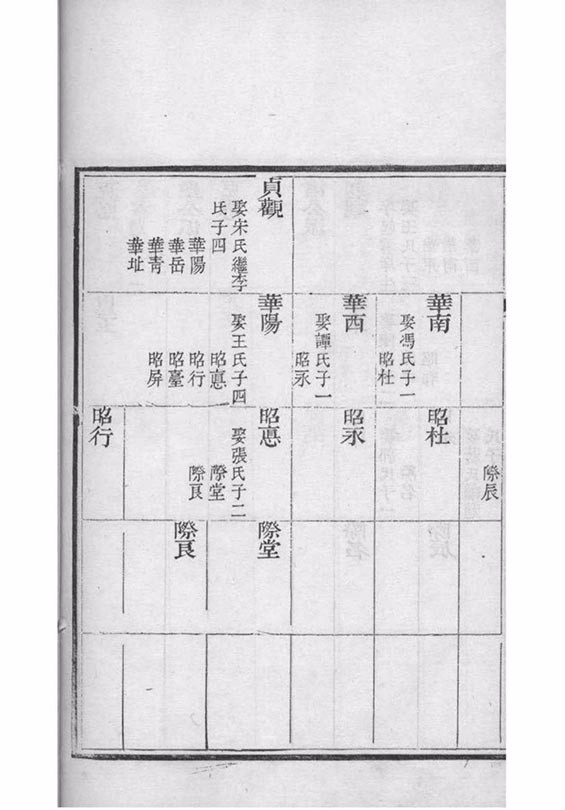 貞觀
娶宋氏繼李
氏子四
華陽
華岳
華青
華址
華南
娶馮氏子一
昭杜
華西
娶譚氏子一
昭永
華陽
娶王氏子四
昭悳
昭行
昭臺
昭屏
際辰
昭杜
昭永
昭悳
娶張氏子二
際堂
際良
昭行
際堂
際良